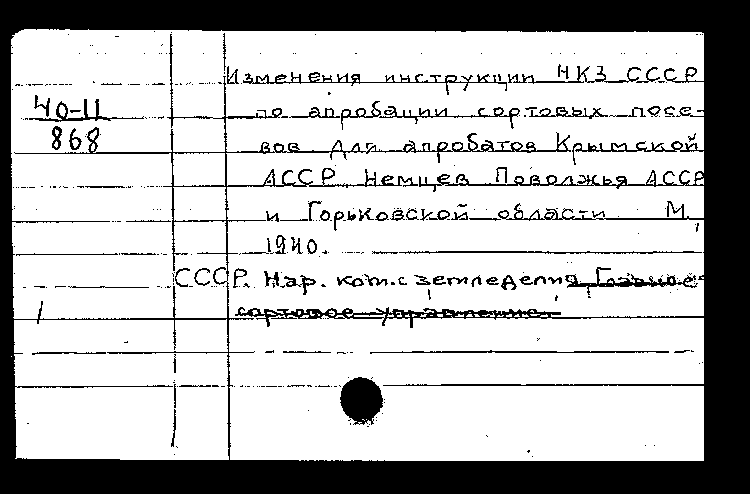 Изменения инструкции НКЗ СССР
40-11
868
по апробации сортовых посе-
вов для апробатов Крымской
АССР Немцев Поволжья АССР
и Горьковской области М.,
1940.
СССР. Нар. ком. с земледелия, Главное
сортовое управление.